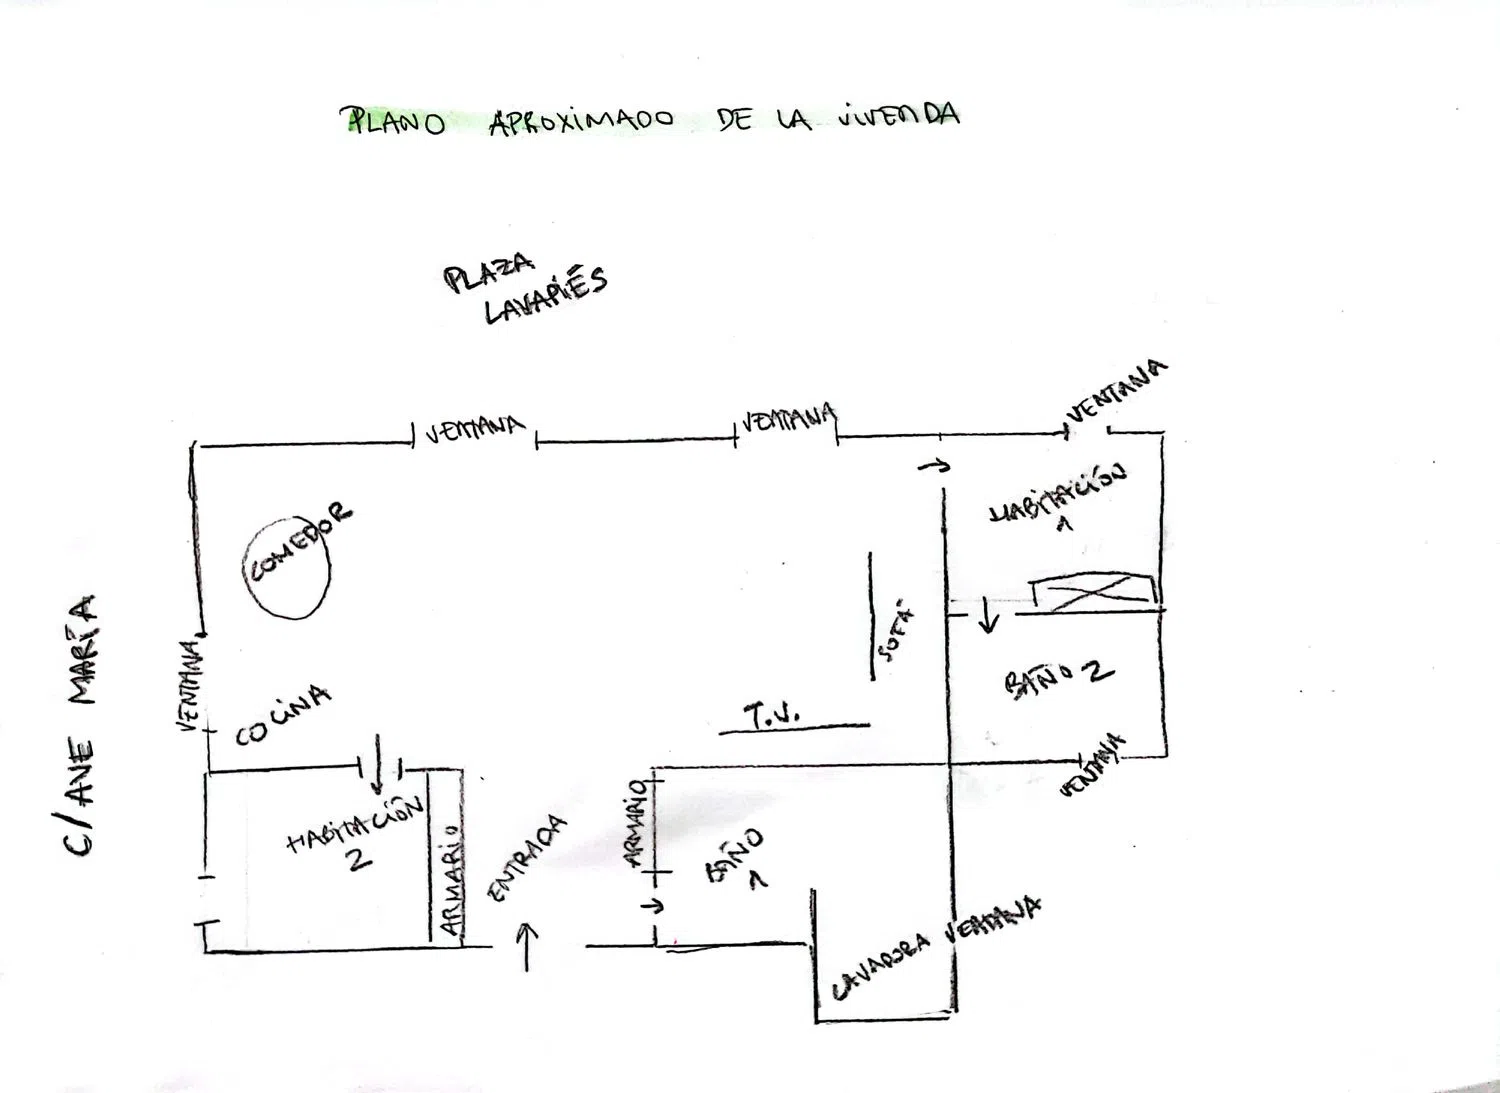 PLANO APROXIMADO DE LA VIVENDA
PLAZA
LAVAPIÉS
VENTANA
VENTANA
VENTANA
HABITACIÓN
1
COMEDOR
C/AVE MARÍA
VENTANA
COCINA
SOFA
T.V.
BAÑO 2
VENTANA
HABITACIÓN
2
ARMARIO
ENTRADA
ARMARIO
BAÑO
1
LAVADORA
VENTANA